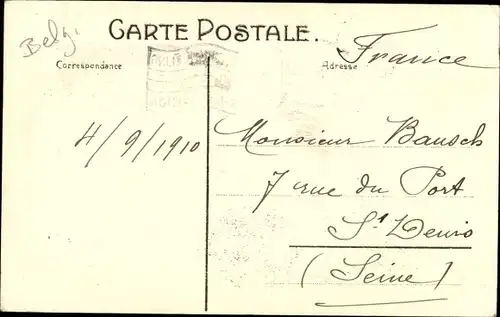 Belgi
CARTE POSTALE.
Correspondance
Adresse
France
4/9/1910
Monsieur Bausch
7 rue du Port
St Denis
(Seine)